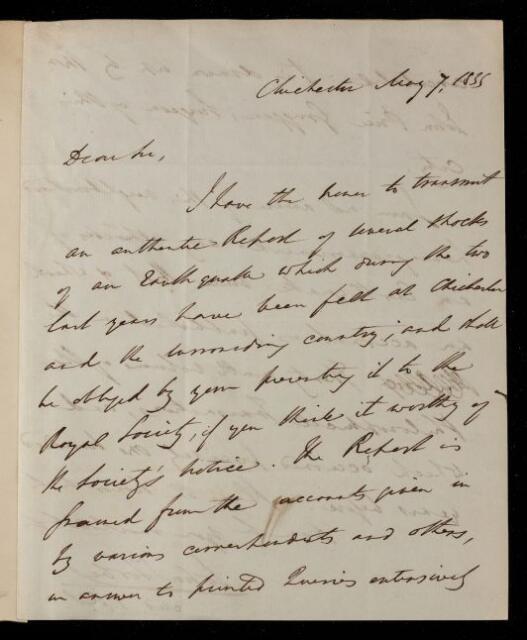 Chichester May 7, 1835
Dear Sir,
I have the honor to transmit
an authentic Report of several shocks
of an Earthquake which during the two
last years have been felt at Chichester
and the surrounding country; and shall
be obliged by your presenting it to the
Royal Society, if you think it worthy of
the Society's notice. The Report is
framed from the accounts given in
by various correspondents and others,
in answer to printed Queries extensively